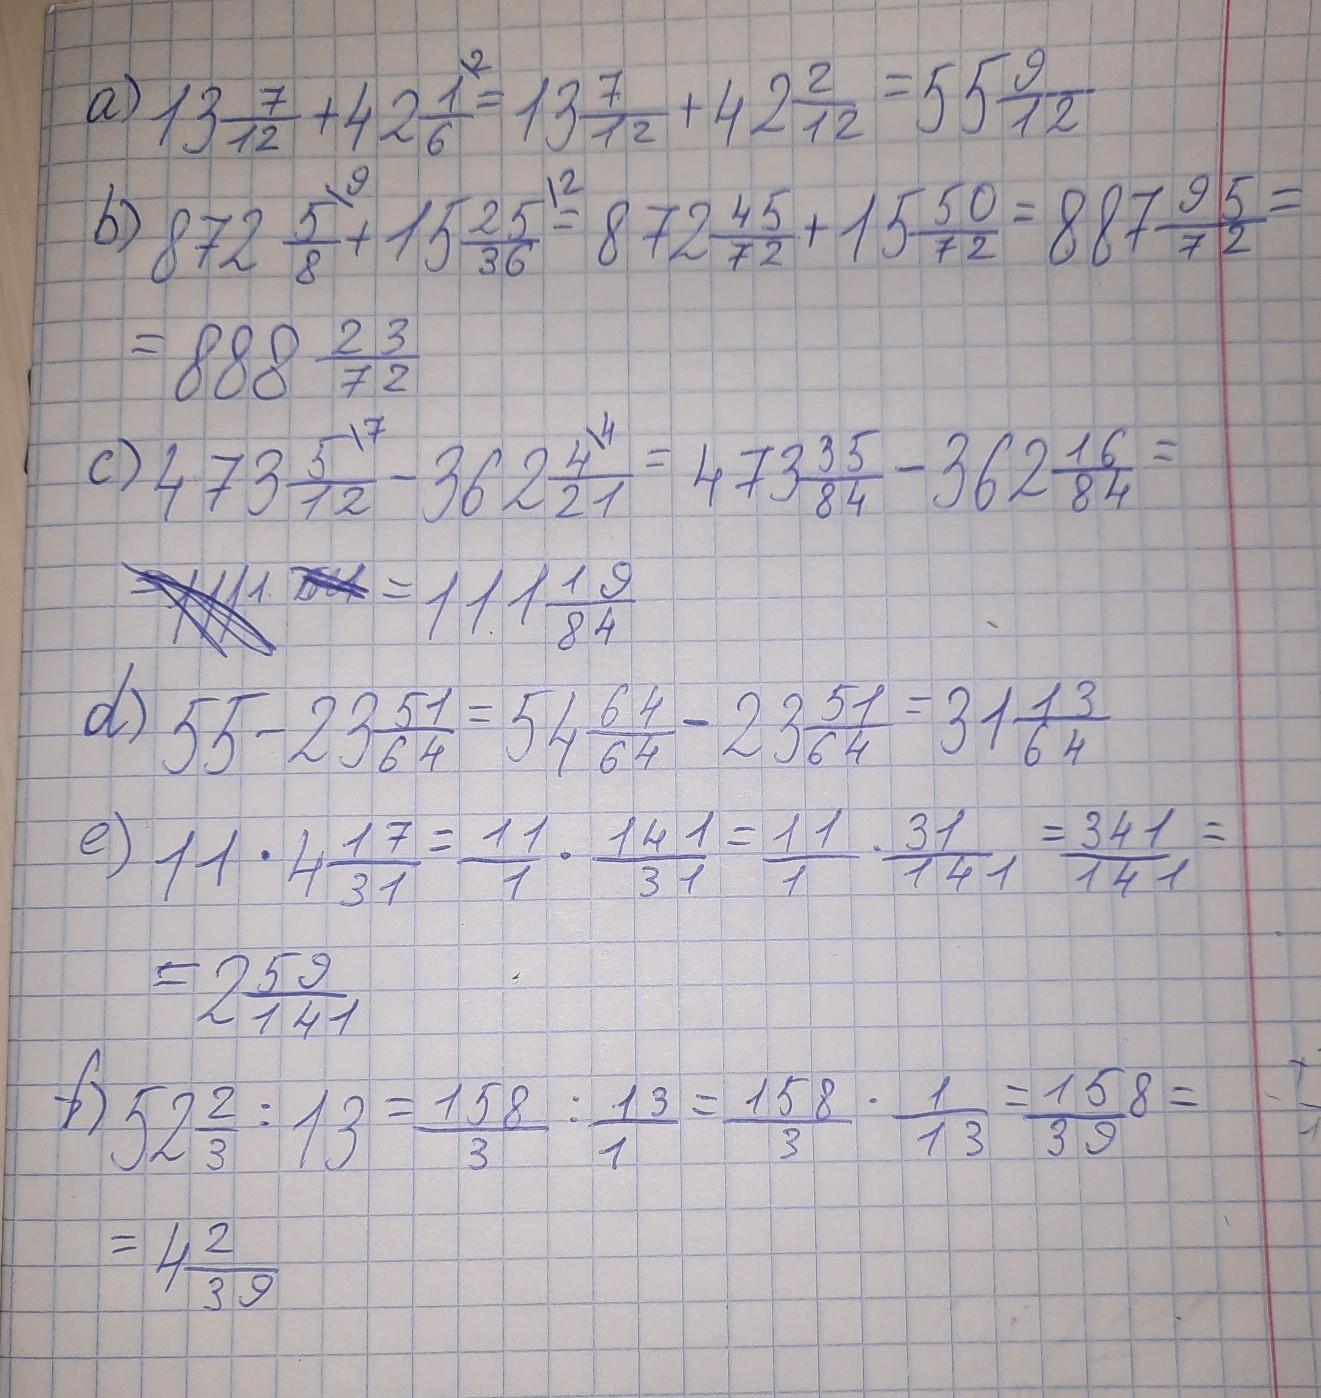 a) 13 7/12 + 42 1/6 \2 = 13 7/12 + 42 2/12 = 55 9/12
b) 872 5/8 \9 + 15 25/36 \2 = 872 45/72 + 15 50/72 = 887 95/72 =
= 888 23/72
c) 473 5/12 \7 - 362 4/21 \4 = 473 35/84 - 362 16/84 =
= 111 19/84
d) 55 - 23 51/64 = 54 64/64 - 23 51/64 = 31 13/64
e) 11 · 4 17/31 = 11/1 · 141/31 = 11/1 · 31/141 = 341/141 =
= 2 59/141
f) 52 2/3 : 13 = 158/3 : 13/1 = 158/3 · 1/13 = 158/39 =
= 4 2/39